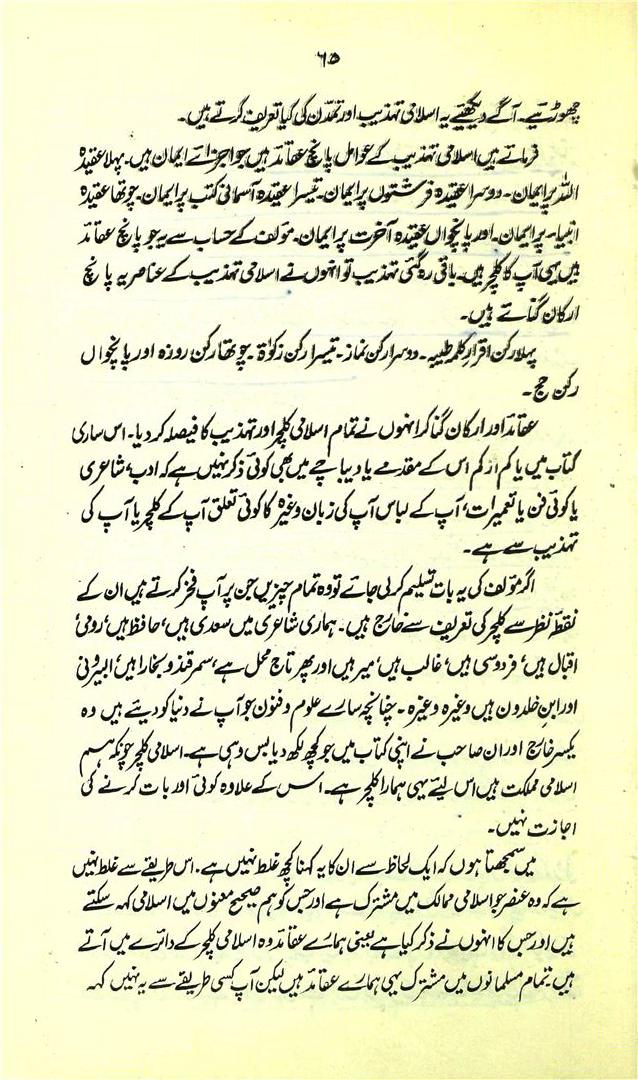 ۶۵
چھوڑئیے۔ آگے دیکھئیے یہ اسلامی تہذیب اور تمدّن کی کیا تعریف کرتے ہیں۔
فرماتے ہیں اسلامی تہذیب کے عوامل پانچ عقائد ہیں جو اجزائے ایمان ہیں۔ پہلا عقیدہ
اللہ پر ایمان۔ دوسرا عقیدہ فرشتوں پر ایمان۔ تیسرا عقیدہ آسمانی کتب پر ایمان۔ چوتھا عقیدہ
انبیاء پر ایمان۔ اور پانچواں عقیدہ آخرت پر ایمان۔ مؤلف کے حساب سے یہ جو پانچ عقائد
ہیں یہی آپ کا کلچر ہیں۔ باقی رہ گئی تہذیب تو انہوں نے اسلامی تہذیب کے عناصر یہ پانچ
ارکان گنائے ہیں۔
پہلا رکن اقرار کلمہ طیبہ۔ دوسرا رکن نماز۔ تیسرا رکن زکوٰۃ۔ چوتھا رکن روزہ اور پانچواں
رکن حج۔
عقائد اور ارکان گنا کر انہوں نے تمام اسلامی کلچر اور تہذیب کا فیصلہ کر دیا۔ اس ساری
کتاب میں یا کم از کم اس کے مقدمے یا دیباچے میں بھی کوئی ذکر نہیں ہے کہ ادب، شاعری
یا کوئی فن یا تعمیرات، آپ کے لباس آپ کی زبان وغیرہ کا کوئی تعلق آپ کے کلچر یا آپ کی
تہذیب سے ہے۔
اگر مؤلف کی یہ بات تسلیم کر لی جائے تو وہ تمام چیزیں جن پر آپ فخر کرتے ہیں ان کے
نقطۂ نظر سے کلچر کی تعریف سے خارج ہیں۔ ہماری شاعری میں سعدی ہیں، حافظ ہیں، رومی،
اقبال ہیں، فردوسی ہیں، غالب ہیں، میر ہیں اور پھر تاج محل ہے، سمرقند و بخارا ہیں، البیرونی
اور ابن خلدون ہیں وغیرہ وغیرہ۔ چنانچہ سارے علوم و فنون جو آپ نے دنیا کو دیئے ہیں وہ
یکسر خارج اور ان صاحب نے اپنی کتاب میں جو کچھ لکھ دیا بس وہی ہے۔ اسلامی کلچر چونکہ ہم
اسلامی مملکت ہیں اس لیئے یہی ہمارا کلچر ہے۔ اس کے علاوہ کوئی اور بات کرنے کی
اجازت نہیں۔
میں سمجھتا ہوں کہ ایک لحاظ سے ان کا یہ کہنا کچھ غلط نہیں ہے۔ اس طریقے سے غلط نہیں
ہے کہ وہ عنصر جو اسلامی ممالک میں مشترک ہے اور جس کو ہم صحیح معنوں میں اسلامی کہہ سکتے
ہیں اور جس کا انہوں نے ذکر کیا ہے یعنی ہمارے عقائد وہ اسلامی کلچر کے دائرے میں آتے
ہیں۔ تمام مسلمانوں میں مشترک یہی ہمارے عقائد ہیں لیکن آپ کسی طریقے سے یہ نہیں کہہ